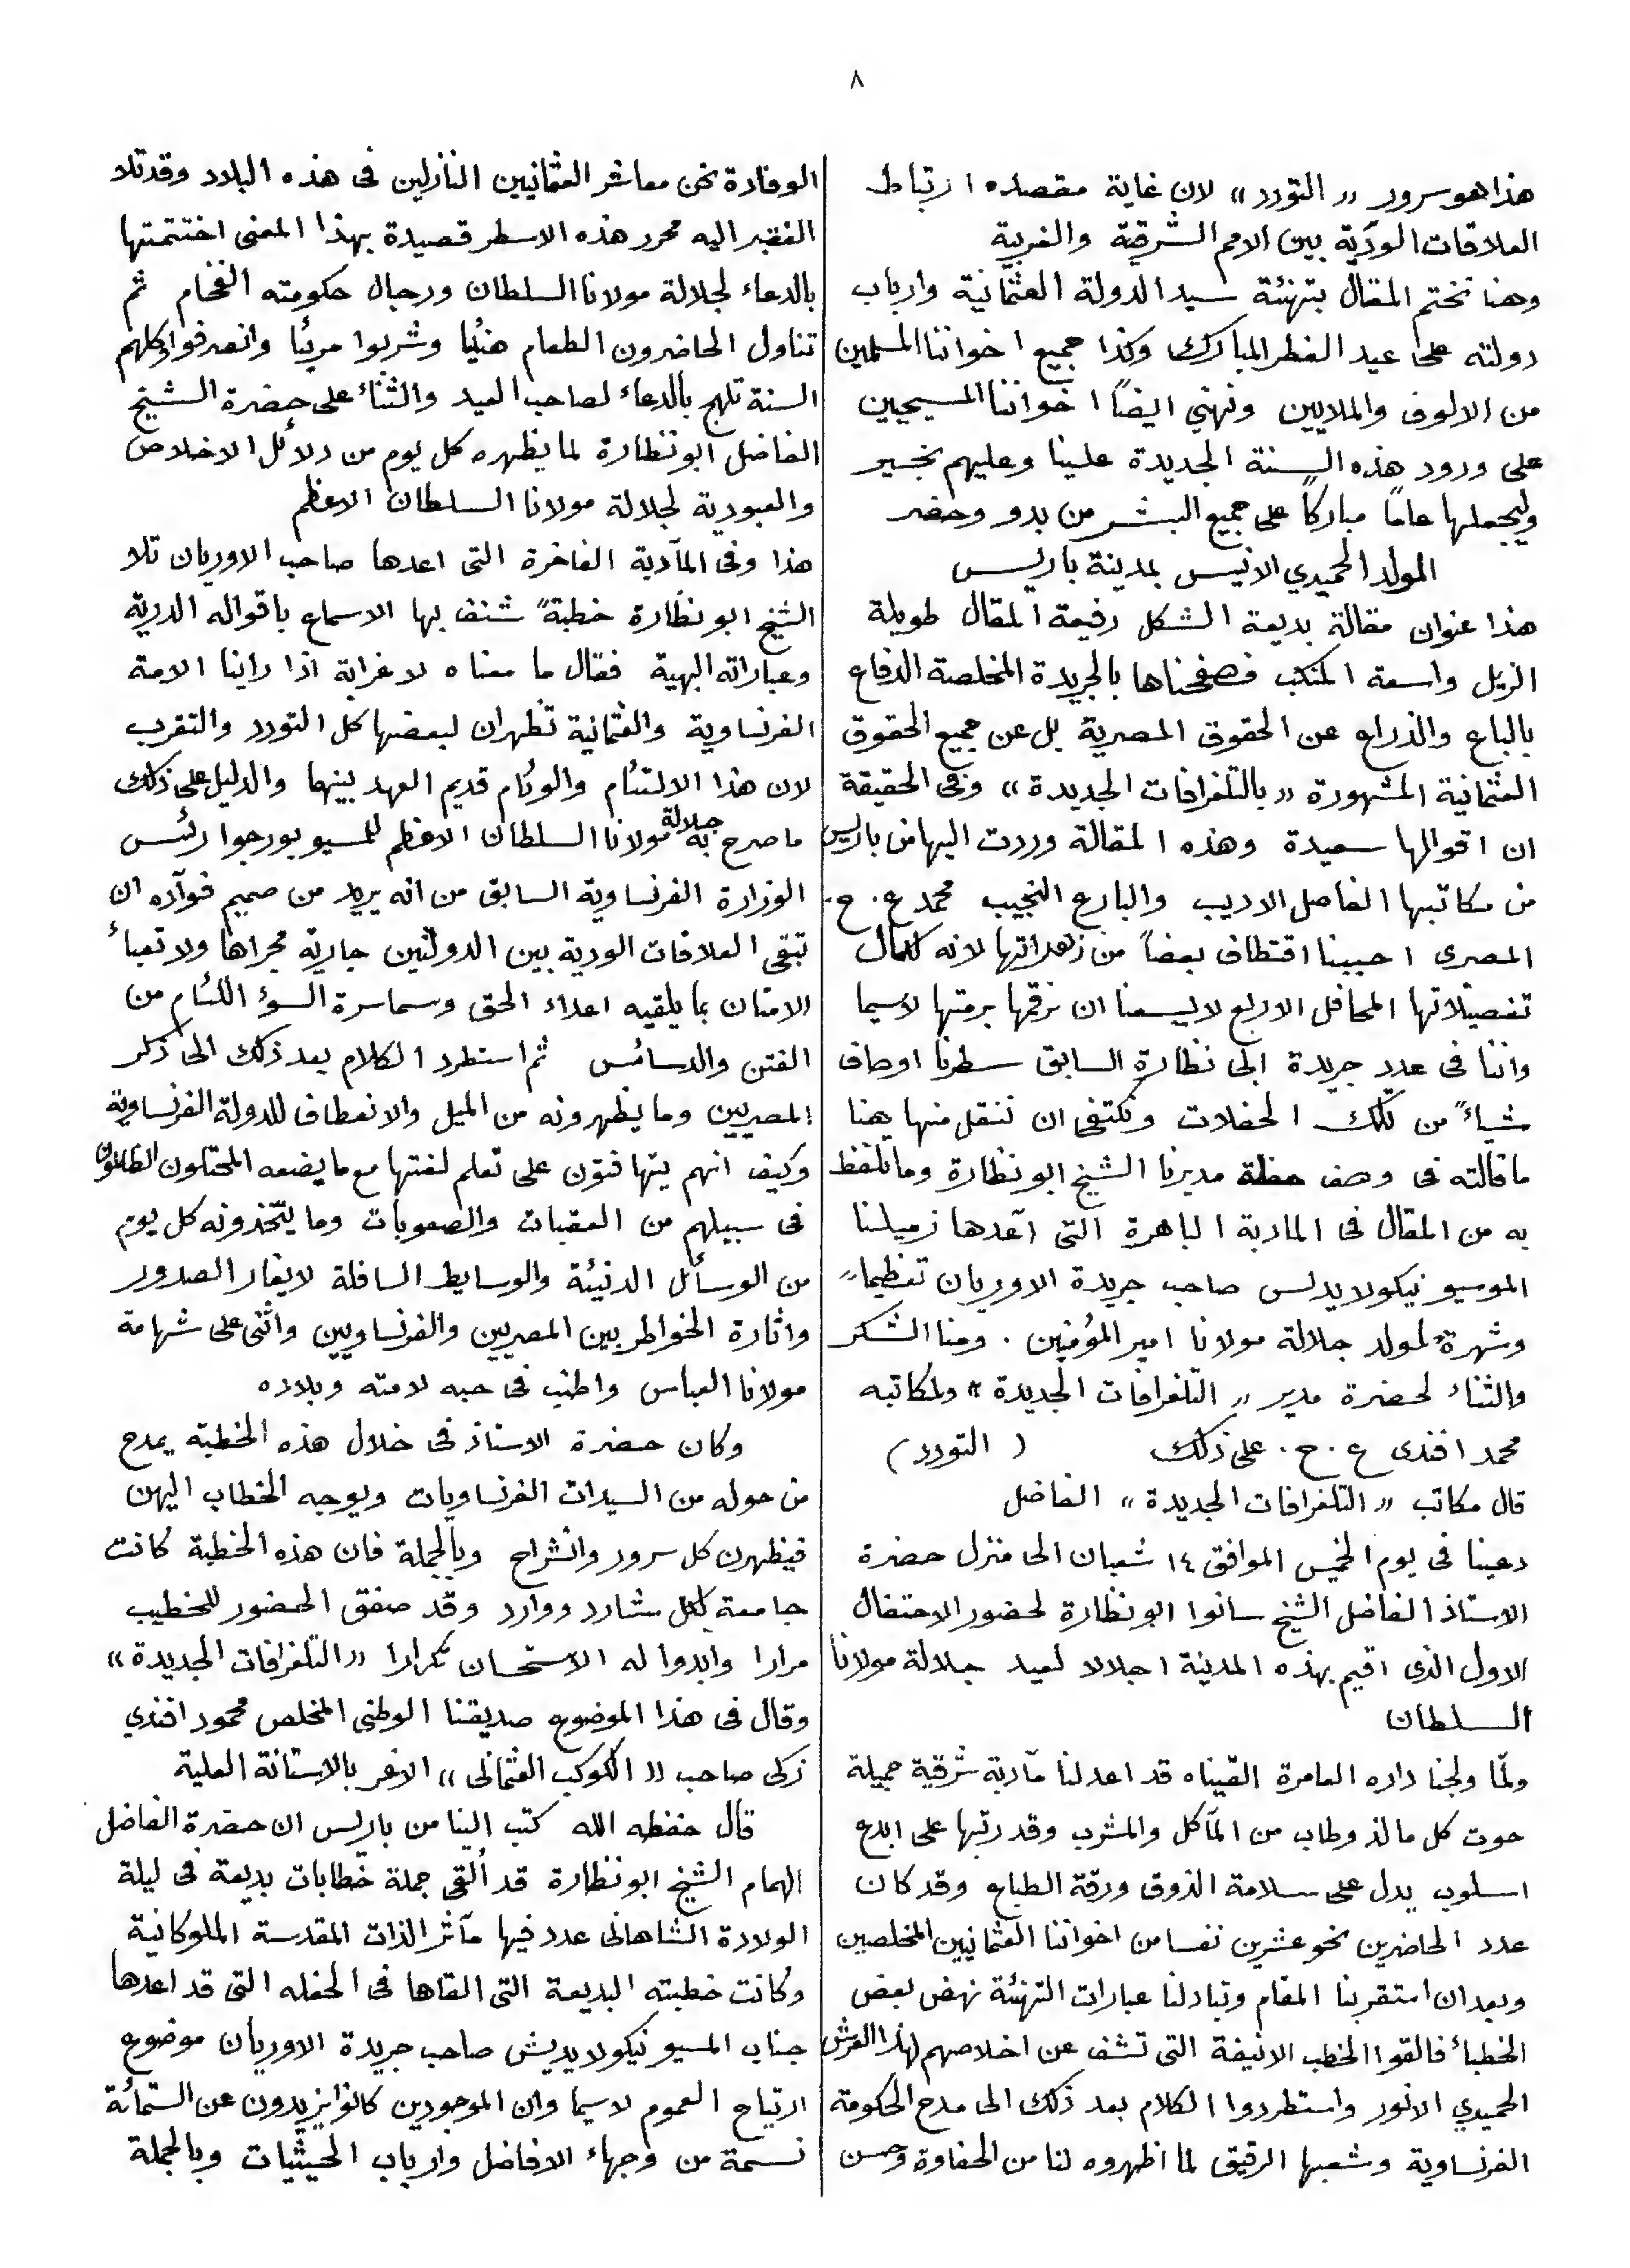 ٨
هذا هو سرور «التودد» لان غاية مقصده ارتباط
العلاقات الودّية بين الامم الشرقية والغربية
وهنا نختم المقال بتهنئة سيد الدولة العثمانية وارباب
دولته على عيد الفطر المبارك وكذا جميع اخواننا المسلمين
من الالوف والملايين ونهني ايضاً اخواننا المسيحيين
على ورود هذه السنة الجديدة علينا وعليهم بخير
وليجعلها عاماً مباركاً على جميع البشر من بدو وحضر
المولد الحميدي الانيس بمدينة باريس
هذا عنوان مقالة بديعة الشكل رفيعة المقال طويلة
الزيل واسعة المنكب فصفحناها بالجريدة المخلصة الدفاع
بالباع والذراع عن الحقوق المصرية بل عن جميع الحقوق
العثمانية المشهورة «بالتلغرافات الجديدة» وفى الحقيقة
ان اقوالها سعيدة وهذه المقالة وردت اليها من باريس
من مكاتبها الفاضل الاديب والبارع النجيب محمد ع. ح.
المصرى احببنا اقتطاف بعضاً من زهراتها لانه لكمال
تفصيلاتها المحافل الاربع لا يسعنا ان نرقمها برمتها لاسيما
واننا فى عدد جريدة ابى نظارة السابق سطرنا اوصاف
شياءً من تلك الحفلات ونكتفى ان ننقل منها هنا
ما قالته فى وصف حفلة مديرنا الشيخ ابو نظارة وما تلفظ
به من المقال فى المادبة الباهرة التى آعدها زميلنا
الموسيو نيكولايدلس صاحب جريدة الاوريان تعظيماً
وشهرةً لمولد جلالة مولانا امير المؤمنين . ومنا الشكر
والثناء لحضرة مدير «التلغرافات الجديدة» ولمكاتبه
محمد افندى ع. ح. على ذلك (التودد)
قال مكاتب «التلغرافات الجديدة» الفاضل
دعينا فى يوم الخميس الموافق ١٤ شعبان الى منزل حضرة
الاستاذ الفاضل الشيخ سانوا ابو نظارة لحضور الاحتفال
الاول الذى اقيم بهذه المدينة اجلالا لعيد جلالة مولانا
السلطان
ولمّا ولجنا داره العامرة القيناه قد اعد لنا مآدبة شرقية جميلة
حوت كل ما لذ وطاب من المآكل والمشرب وقد رتبها على ابدع
اسلوب يدل على سلامة الذوق ورقة الطباع وقد كان
عدد الحاضرين نحو عشرين نفسا من اخواننا العثمانيين المخلصين
وبعد ان استقر بنا المقام وتبادلنا عبارات التهنئة نهض بعض
الخطباء فالقوا الخطب الانيفة التى تشف عن اخلاصهم لهذا العرش
الحميدي الانور واستطردوا الكلام بعد ذلك الى مدح الحكومة
الفرنساوية وشعبها الرقيق لما اظهروه لنا من الحفاوة وحسن
الوفادة نحن معاشر العثمانيين النازلين فى هذه البلاد وقد تلا
الفقير اليه محرر هذه الاسطر قصيدة بهذا المعنى اختتمتها
بالدعاء لجلالة مولانا السلطان ورجال حكومته الفخام ثم
تناول الحاضرون الطعام هنيئا وشربوا مريئا وانصرفوا وكلهم
السنة تلهج بالدعاء لصاحب العيد والثناء على حضرة الشيخ
الفاضل ابو نظارة لما يظهره كل يوم من دلائل الاخلاص
والعبودية لجلالة مولانا السلطان الاعظم
هذا وفى المآدبة الفاخرة التى اعدها صاحب الاوريان تلا
الشيخ ابو نظارة خطبةً شنف بها الاسماع باقواله الدرية
وعباراته البهية فقال ما معناه لا غرابة اذا راينا الامة
الفرنساوية والعثمانية تظهران لبعضها كل التودد والتقرب
لان هذا الالتئام والوئام قديم العهد بينهما والدليل على ذلك
ما صرح به جلالة مولانا السلطان الاعظم للمسيو بورجوا رئس
الوزارة الفرنساوية السابق من انه يريد من صميم فوآده ان
تبقى العلاقات الودية بين الدولتين جارية مجراها ولا تعبأ
الامتان بما يلقيه اعداء الحق وسماسرة السؤ اللئام من
الفتن والدسائس ثم استطرد الكلام بعد ذلك الى ذكر
المصريين وما يظهرونه من الميل والانعطاف للدولة الفرنساوية
وكيف انهم يتهافتون على تعلم لغتها مع ما يضعه المحتلون الظالمون
فى سبيلهم من العقبات والصعوبات وما يتّخذونه كل يوم
من الوسائل الدنيئة والوسايط السافلة لايغار الصدور
واثارة الخواطر بين المصريين والفرنساويين واثنى على شهامة
مولانا العباس واطنب فى حبه لامته وبلاده
وكان حضرة الاستاذ فى خلال هذه الخطبة يمدح
من حوله من السيدات الفرنساويات ويوجه الخطاب اليهن
فيظهرن كل سرور وانشراح وبالجملة فان هذه الخطبة كانت
جامعة لكل شارد ووارد وقد صفق الحضور للخطيب
مرارا وابدوا له الاستحسان تكرارا «التلغرافات الجديدة»
وقال فى هذا الموضوع صديقنا الوطنى المخلص محمود افندي
زكى صاحب «الكوكب العثمانى» الاغر بالاستانة العلية
قال حفظه الله كتب الينا من باريس ان حضرة الفاضل
الهمام الشيخ ابو نظارة قد ألقى جملة خطابات بديعة فى ليلة
الولادة الشاهانى عدد فيها مآثر الذات المقدسة الملوكانية
وكانت خطبته البديعة التى القاها فى الحفله التى قد اعدها
جناب المسيو نيكولايديش صاحب جريدة الاوريان موضوع
ارتياح العموم لاسيما وان الموجودين كانوا يزيدون عن الستمائة
نسمة من وجهاء الافاضل وارباب الحيثيات وبالجملة